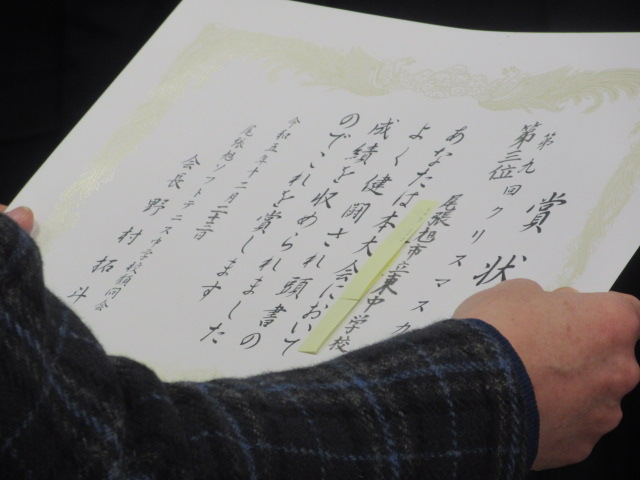 賞状
第九回クリスマスカ
第三位
尾張旭市立東中学校
あなたは本大会において
よく健闘され頭書の
成績を収められました
のでこれを賞します
令和五年十二月二十三日
尾張旭ソフトテニス中学校顧問会
会長 野村拓斗